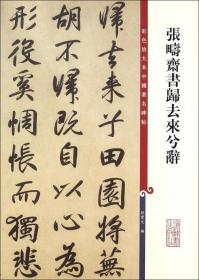 張疇齋書歸去來兮辭
彩色放大本中國著名碑帖
孫寶文 編
歸去来兮田園將蕪
胡不歸既自以心為
形役奚惆悵而獨悲